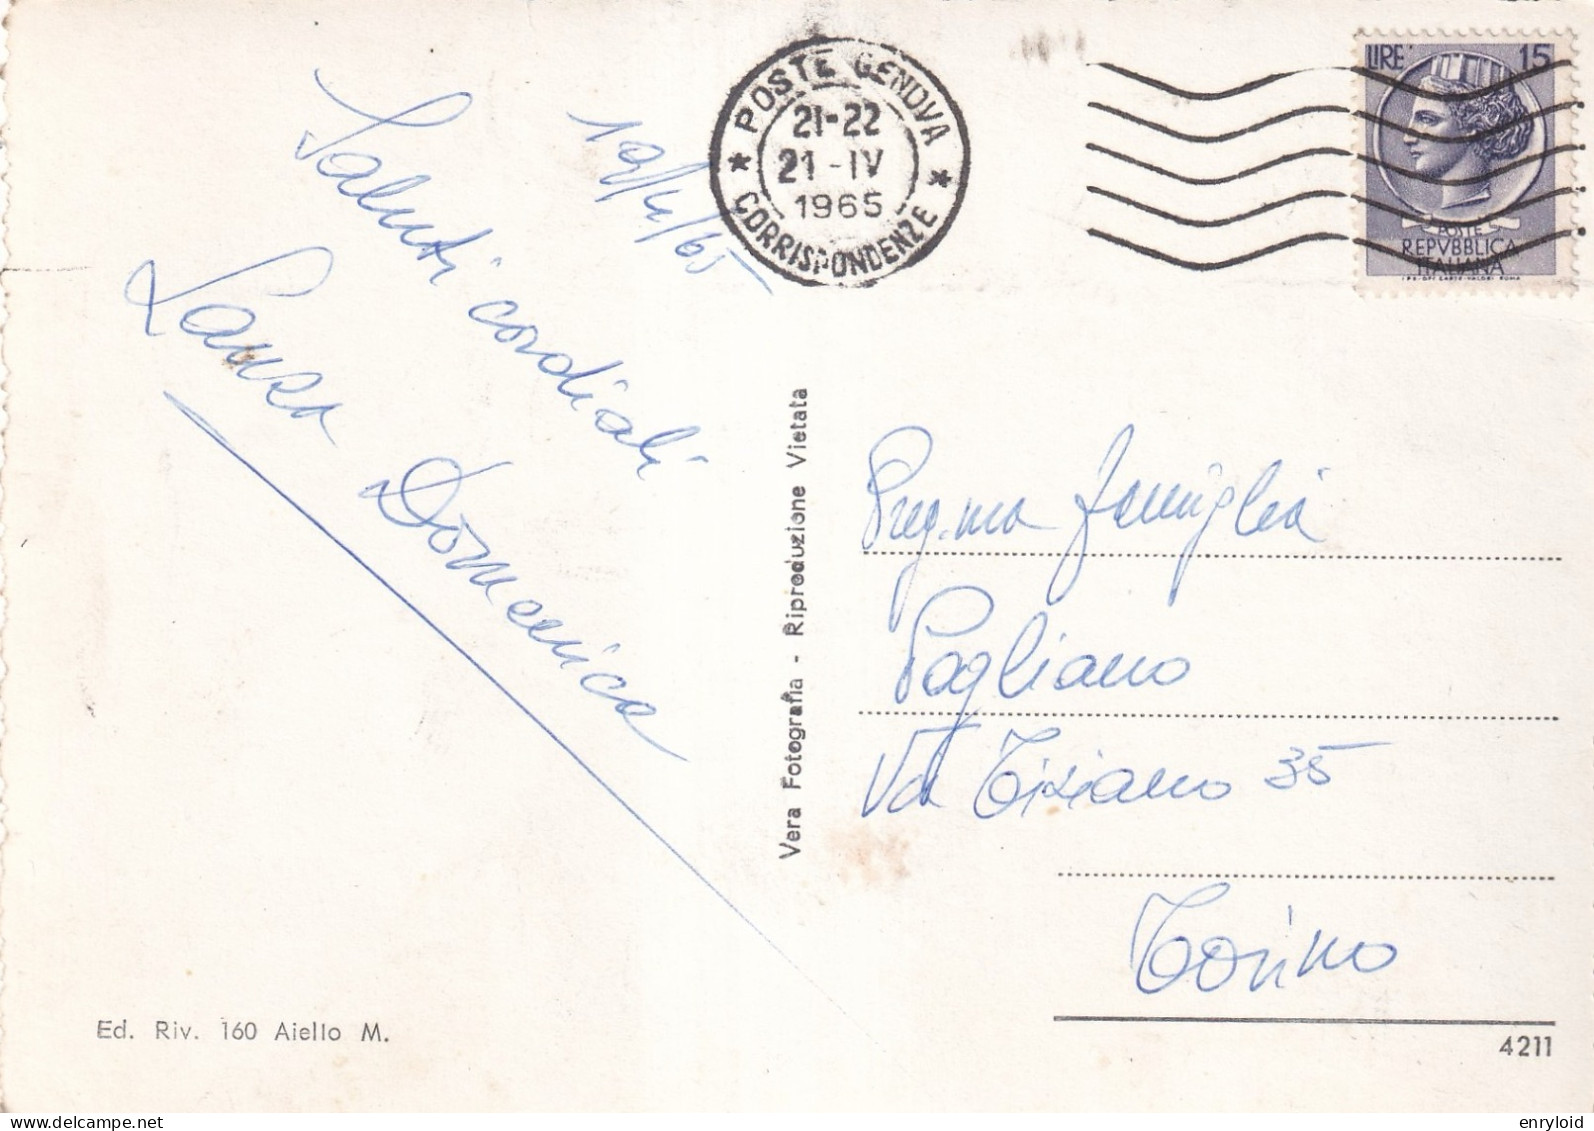 19/4/65
Saluti cordiali
Laura Domenica
POSTE GENOVA
21-22
21-IV
1965
CORRISPONDENZE
LIRE 15
POSTE
REPVBBLICA
ITALIANA
Vera Fotografia - Riproduzione Vietata
Preg.ma famiglia
Pagliano
Via Tiziano 35
Torino
Ed. Riv. 160 Aiello M.
4211
delcampe.net
enryloid